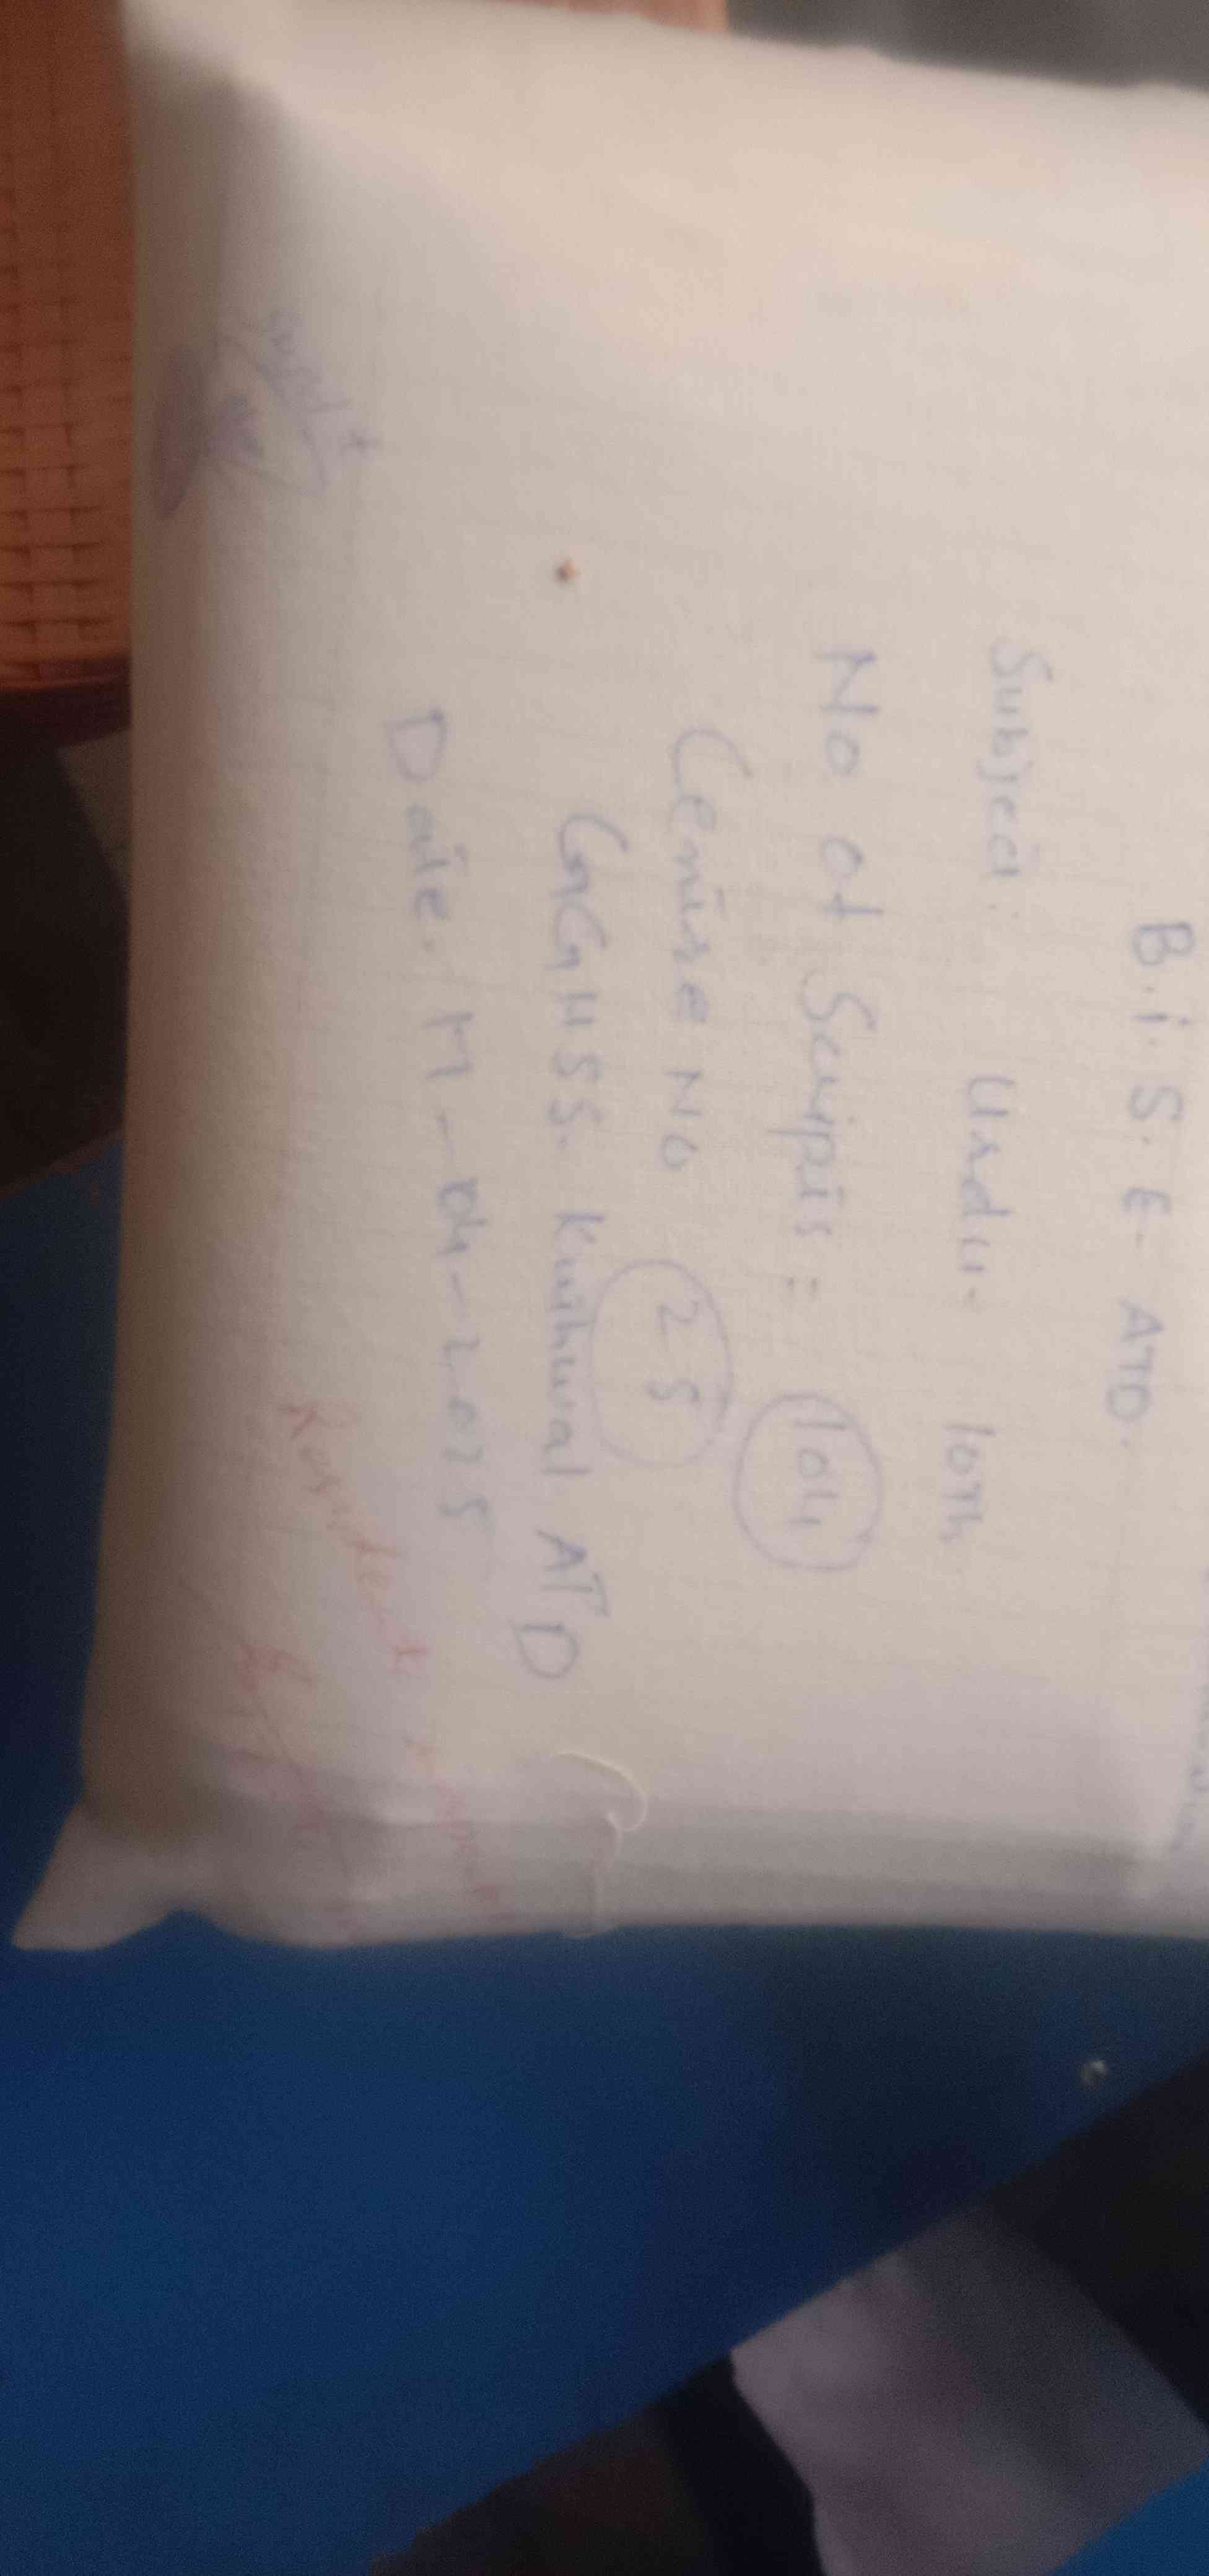 B.I.S.E ATD.
Subject: Urdu- 10th
No of Scripts: 104
Centre No 25
GGHSS. Kuthwal, ATD
Date. 11-04-2025
Supdt
Resident